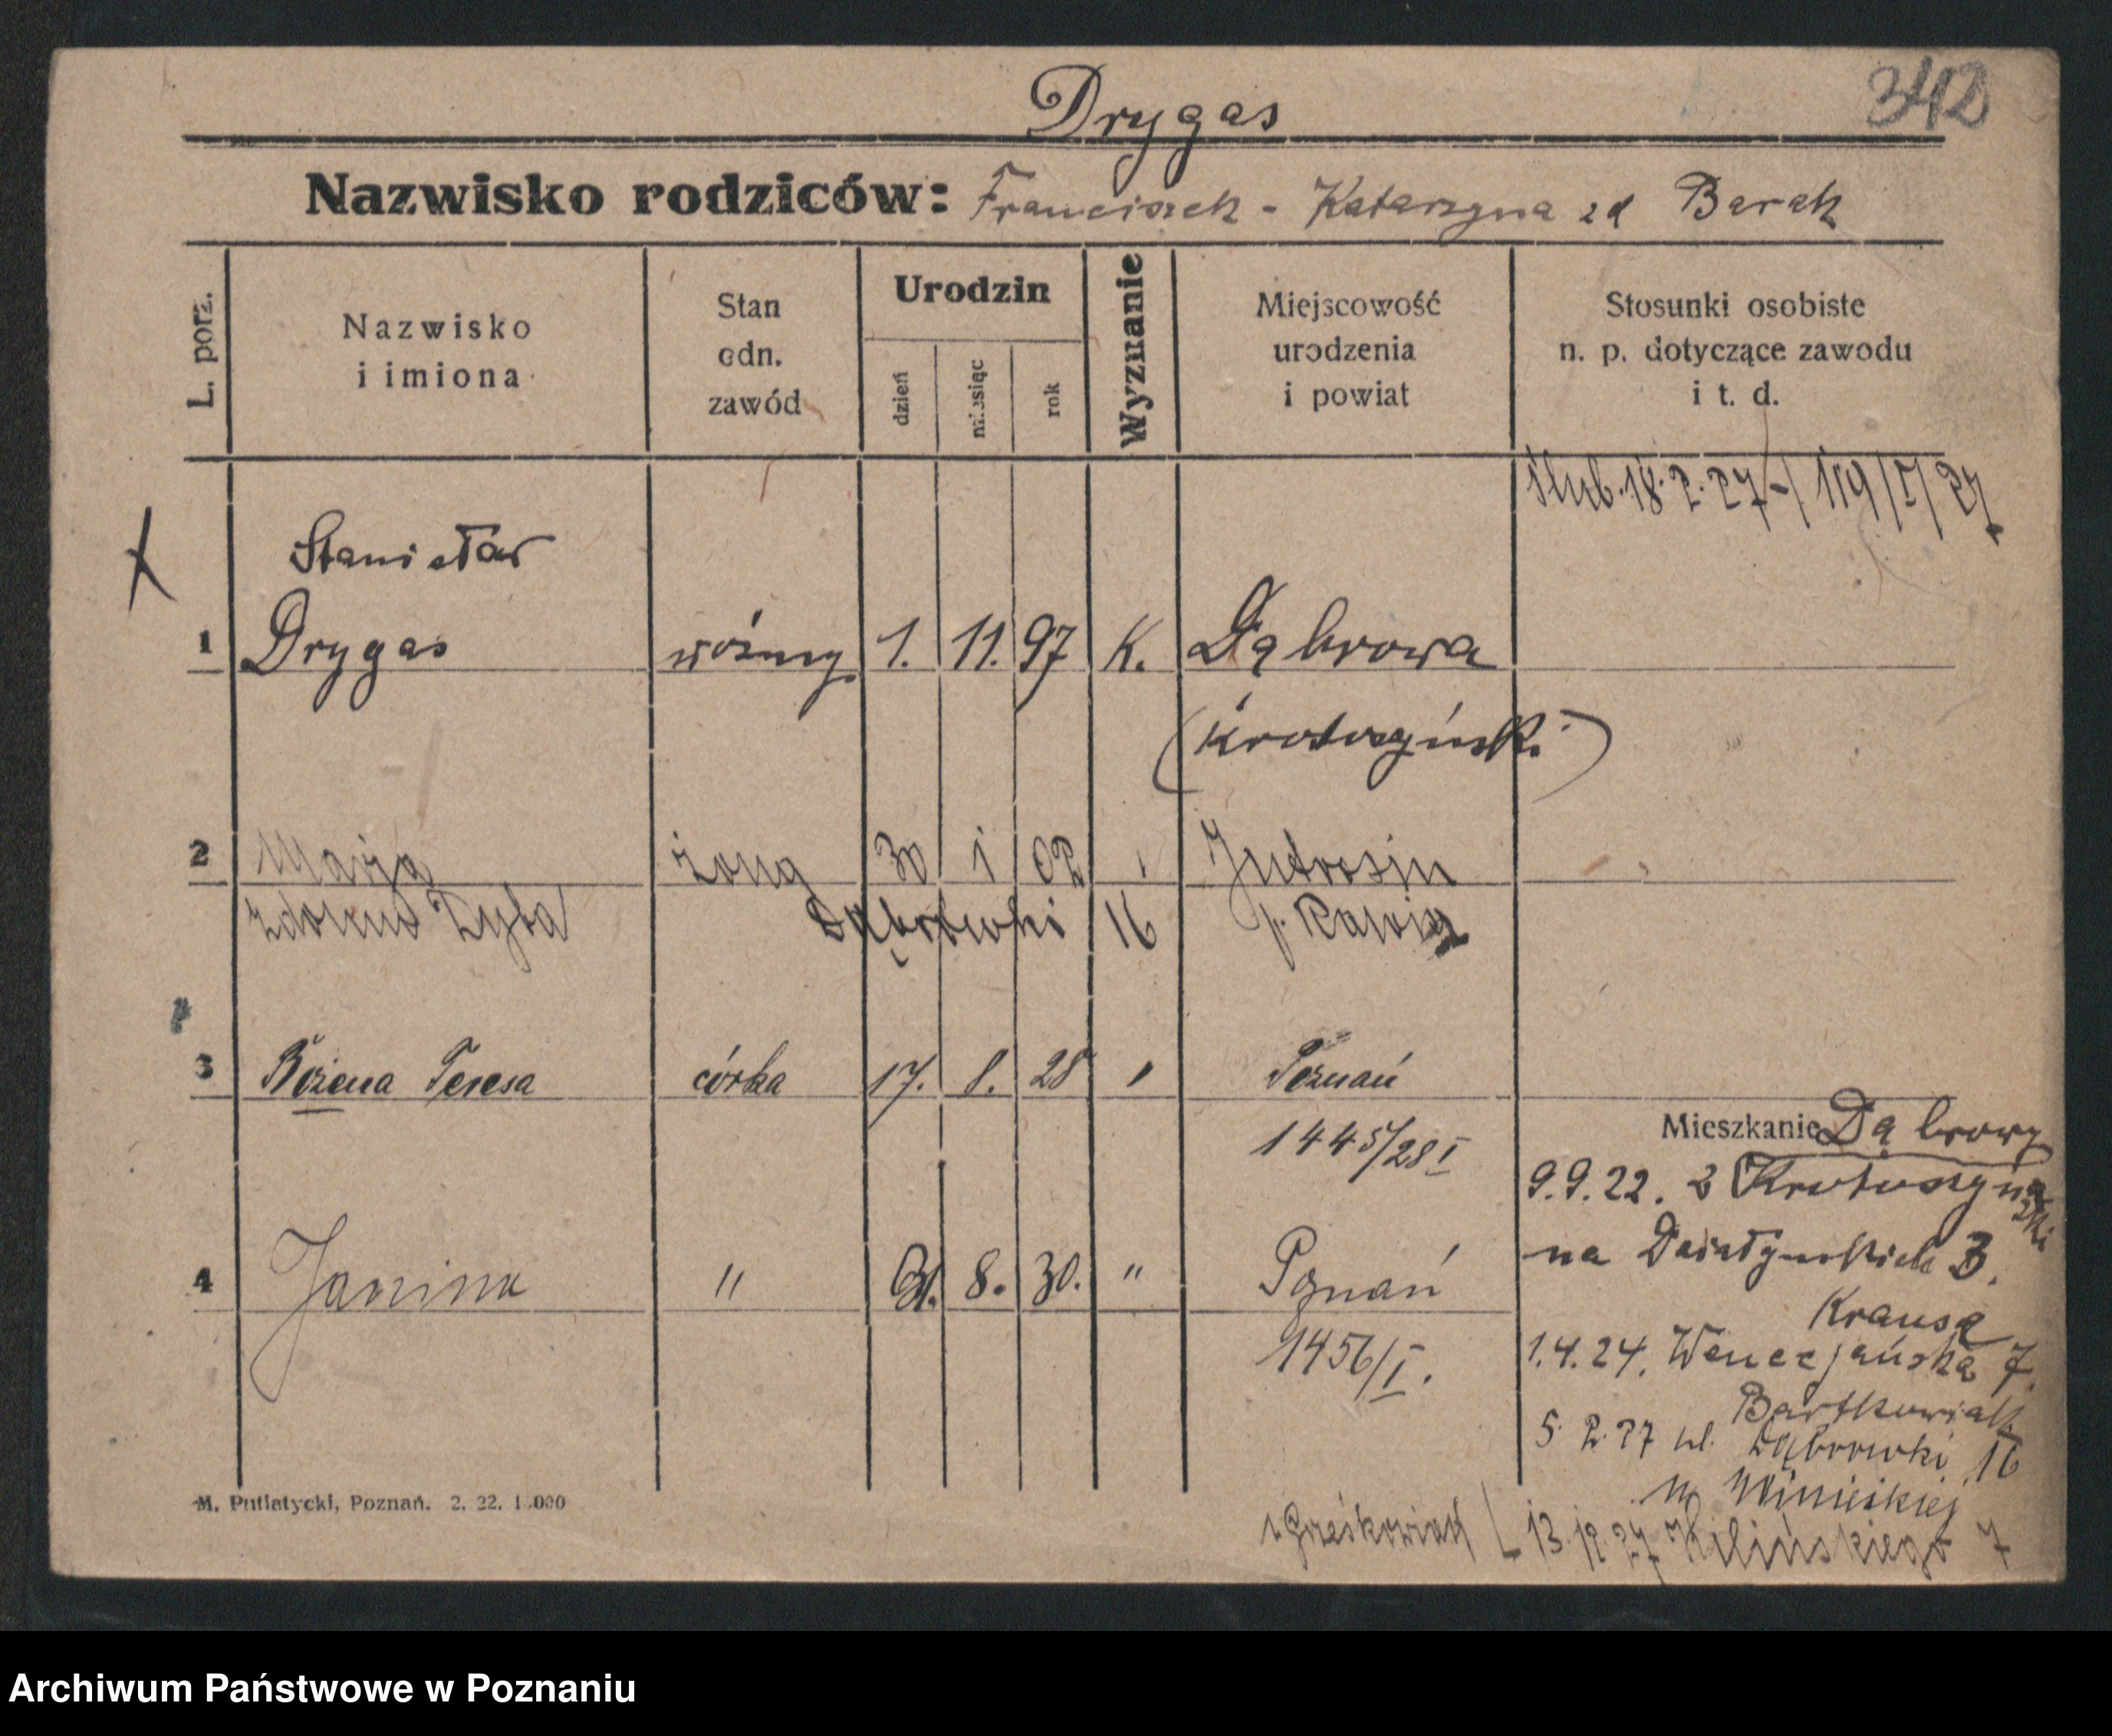 342
Drygas
Nazwisko rodziców: Franciszek - Katarzyna zd Barak
L. porz.
Nazwisko
i imiona
Stan
odn.
zawód
Urodzin
dzień
miesiąc
rok
Wyznanie
Miejscowość
urodzenia
i powiat
Stosunki osobiste
n. p. dotyczące zawodu
i t. d.
ślub. 18. 2. 27 -/ 119/I/27
Stanisław
1 Drygas woźny 1. 11. 97 K. Dąbrowa
(krotoszyński)
2 Marja żona 30 1 02 Jutrosin
zdomu Zyba Dąbrówki 16 p. Rawicz
3 Bożena Teresa córka 17. 8. 28 " Poznań
1445/28 I
4 Janina " 31. 8. 30. " Poznań
1456/I.
Mieszkanie Dąbrowy
9.9.22. z Krotoszyński
na Działyńskich 3.
Krausą
1.4.24. Wenecjańska 7.
Bartkowiak
5. 2. 27 ul. Dąbrówki 16
Winieckiej
Grześkowiak 13. 12. 27 Kilińskiego 7
M. Putiatycki, Poznań. 2. 22.
Archiwum Państwowe w Poznaniu